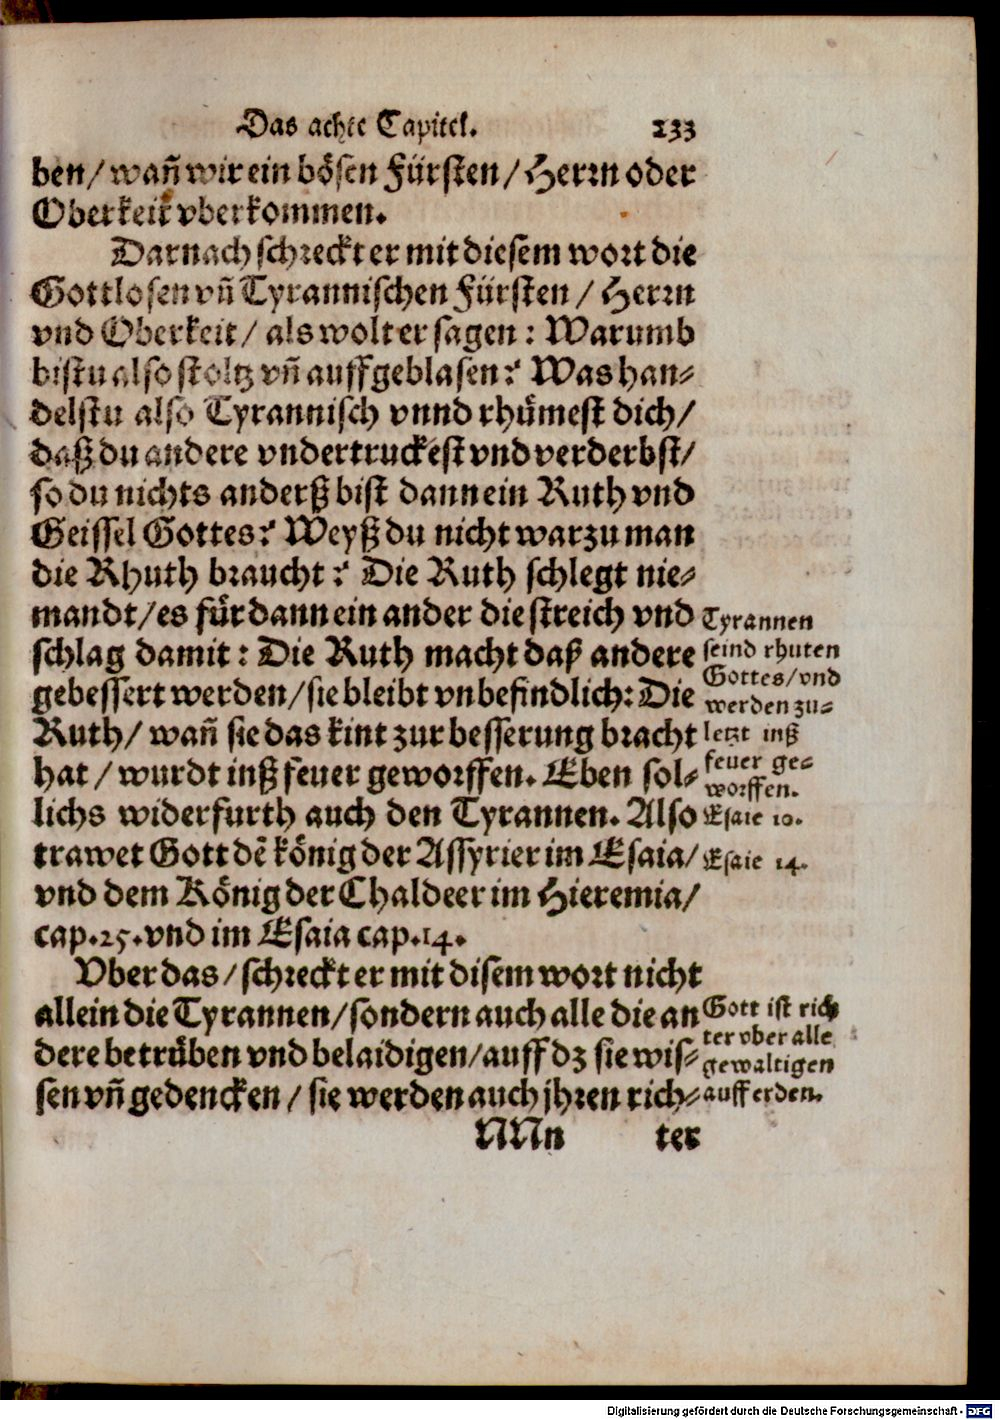 Das achte Capitel. 233
ben/ wañ wir ein bösen Fürsten/ Herrn oder
Oberkeit vberkommen.
Darnach schreckt er mit diesem wort die
Gottlosen vñ Tyrannischen Fürsten/ Herrn
vnd Oberkeit/ als wolt er sagen: Warumb
bistu also stoltz vñ auffgeblasen? Was han-
delstu also Tyrannisch vnnd rhůmest dich/
daß du andere vndertruckest vnd verderbst/
so du nichts anderß bist dann ein Ruth vnd
Geissel Gottes? Weyß du nicht warzu man
die Rhuth braucht? Die Ruth schlegt nie-
mandt/ es fůr dann ein ander die streich vnd
schlag damit: Die Ruth macht daß andere
gebessert werden/ sie bleibt vnbefindlich: Die
Ruth/ wañ sie das kint zur besserung bracht
hat/ wurdt inß feuer geworffen. Eben sol-
lichs widerfurth auch den Tyrannen. Also
trawet Gott dẽ könig der Assyrier im Esaia/
vnd dem König der Chaldeer im Hieremia/
cap.25. vnd im Esaia cap.14.
Tyrannen
seind rhuten
Gottes/ vnd
werden zu-
letzt inß
feuer ge-
worffen.
Esaie 10.
Esaie 14.
Vber das/ schreckt er mit disem wort nicht
allein die Tyrannen/ sondern auch alle die an
dere betrůben vnd belaidigen/ auff dz sie wis-
sen vñ gedencken/ sie werden auch jhren rich-
Gott ist rich
ter vber alle
gewaltigen
auff erden.
NNn ter
Digitalisierung gefördert durch die Deutsche Forschungsgemeinschaft - DFG